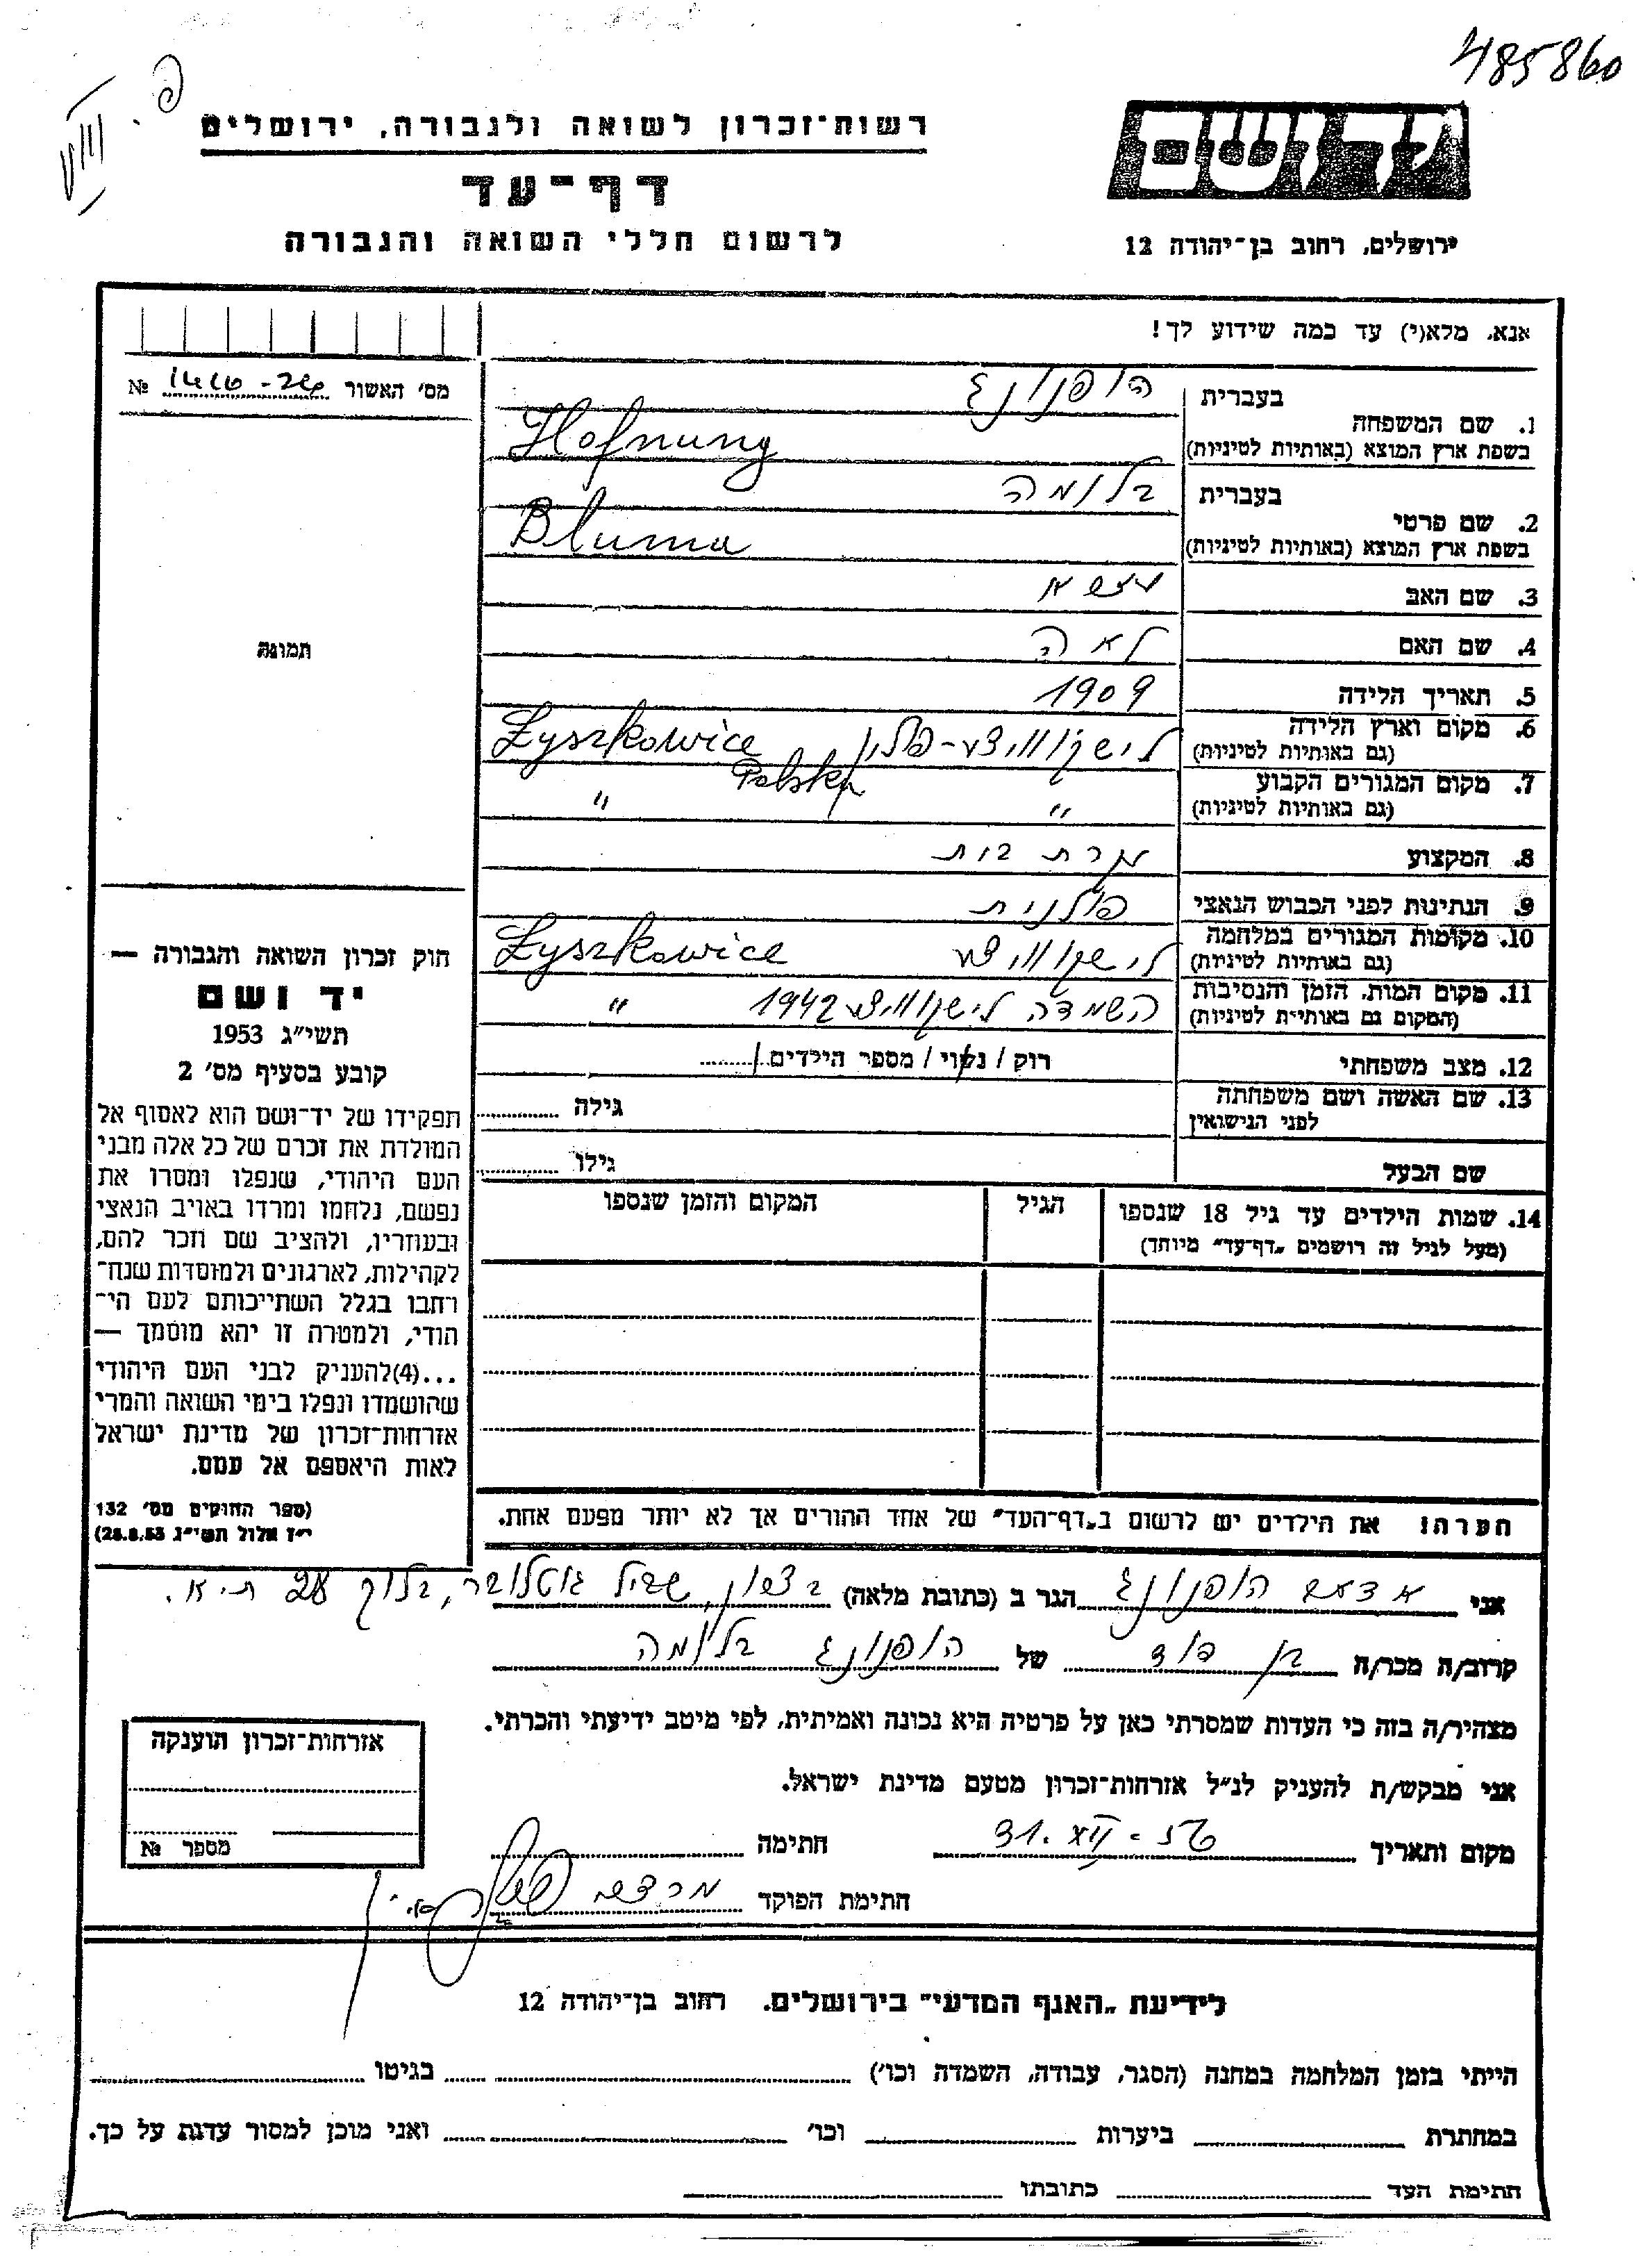 485860
רשות־זכרון לשואה ולגבורה, ירושלים
דף־עד
לרשום חללי השואה והגבורה
יד ושם
ירושלים, רחוב בן־יהודה 12
אנא, מלא(י) עד כמה שידוע לך!
מס׳ האשור №
תמונה
1. שם המשפחה בעברית הופנונג
בשפת ארץ המוצא (באותיות לטיניות) Hofnung
2. שם פרטי בעברית בלומה
בשפת ארץ המוצא (באותיות לטיניות) Bluma
3. שם האב
4. שם האם לאה
5. תאריך הלידה 1909
6. מקום וארץ הלידה לישקוויצע - פולין Łyszkowice
(גם באותיות לטיניות) Polska
7. מקום המגורים הקבוע
(גם באותיות לטיניות) " "
8. המקצוע עקרת בית
9. הנתינות לפני הכבוש הנאצי פולנית
10. מקומות המגורים במלחמה לישקוויצע Łyszkowice
(גם באותיות לטיניות)
11. מקום המות, הזמן והנסיבות השמדה לישקוויצע 1942 "
(המקום גם באותיות לטיניות)
12. מצב משפחתי רוק / נשוי / מספר הילדים
13. שם האשה ושם משפחתה גילה
לפני הנישואין
שם הבעל גילו
14. שמות הילדים עד גיל 18 שנספו הגיל המקום והזמן שנספו
(מעל לגיל זה רושמים „דף־עד" מיוחד)
חוק זכרון השואה והגבורה —
יד ושם
תשי״ג 1953
קובע בסעיף מס׳ 2
תפקידו של יד־ושם הוא לאסוף אל
המולדת את זכרם של כל אלה מבני
העם היהודי, שנפלו ומסרו את
נפשם, נלחמו ומרדו באויב הנאצי
ובעוזריו, ולהציב שם וזכר להם,
לקהילות, לארגונים ולמוסדות שנח־
רחבו בגלל השתייכותם לעם הי־
הודי, ולמטרה זו יהא מוסמך —
...(4)להעניק לבני העם היהודי
שהושמדו ונפלו בימי השואה והמרי
אזרחות־זכרון של מדינת ישראל
לאות היאספם אל עמם.
(ספר החוקים מס׳ 132
י״ז אלול תשי״ג 28.8.53)
הערה! את הילדים יש לרשום ב„דף־העד" של אחד ההורים אך לא יותר מפעם אחת.
אני הופנונג הגר ב (כתובת מלאה)
קרוב/ה מכר/ה בן דוד של הופנונג בלומה
מצהיר/ה בזה כי העדות שמסרתי כאן על פרטיה היא נכונה ואמיתית, לפי מיטב ידיעתי והכרתי.
אני מבקש/ת להעניק לנ״ל אזרחות־זכרון מטעם מדינת ישראל.
מקום ותאריך 31. XII - 56 חתימה
חתימת הפוקד
אזרחות־זכרון הוענקה
מספר №
לידיעת „האגף המדעי" בירושלים. רחוב בן־יהודה 12
הייתי בזמן המלחמה במחנה (הסגר, עבודה, השמדה וכו׳) בגיטו
במחתרת ביערות וכו׳ ואני מוכן למסור עדות על כך.
חתימת העד כתובתו